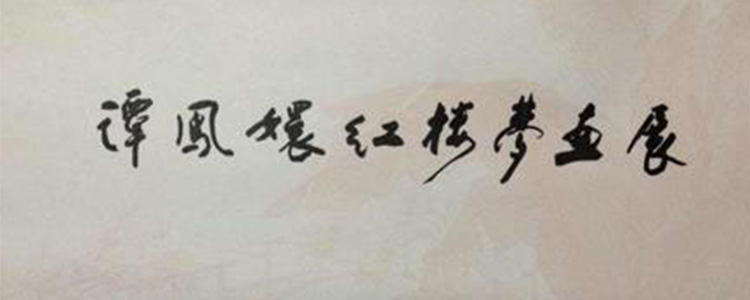 谭凤嬛红楼梦画展